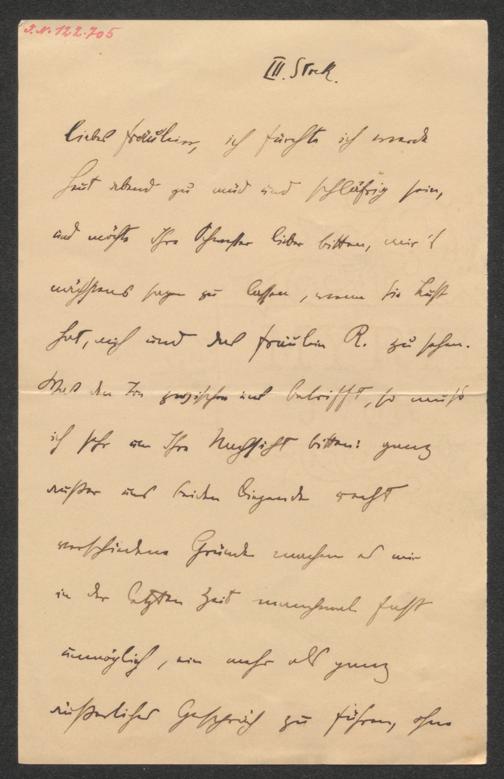 I.N. 122.705
III. Stock.
liebes Fräulein, ich fürchte ich werde
heut abend zu müd und schläfrig sein,
und möchte Ihre Schwester lieber bitten, mir's
nächstens sagen zu lassen, wenn sie Lust
hat, mich und das Fräulein R. zu sehen.
Was den Ton zwischen uns betrifft, so muss
ich sehr um Ihre Nachsicht bitten: ganz
außer uns beiden liegende recht
verschiedene Gründe machen es mir
in der letzten Zeit manchmal fast
unmöglich, ein mehr als ganz
äußerliches Gespräch zu führen, ohne